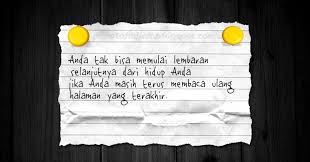 Anda tak bisa memulai lembaran
selanjutnya dari hidup Anda
jika Anda masih terus membaca ulang
halaman yang terakhir